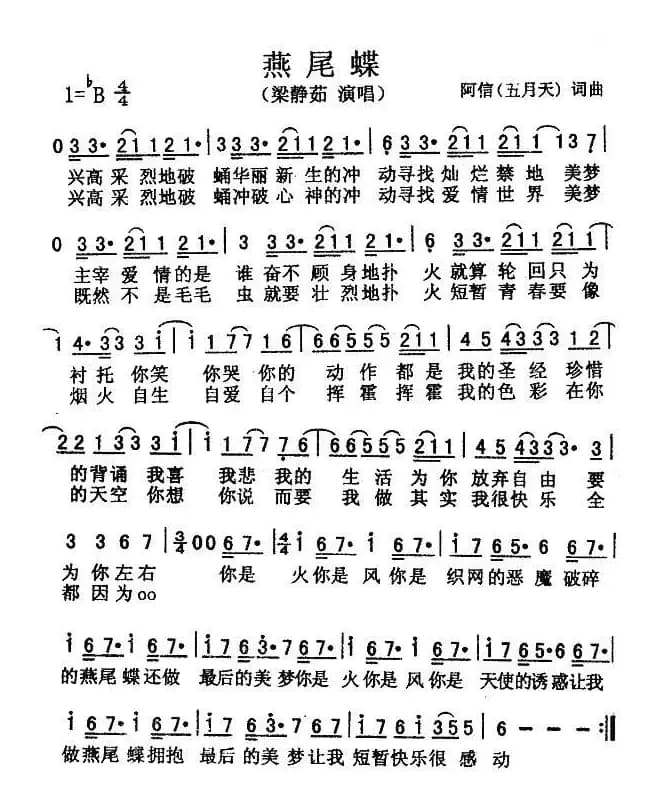 燕尾蝶
1=♭B 4/4 （梁静茹 演唱） 阿信（五月天）词曲
0 3 3· 2 1 1 2 1·| 3 3 3· 2 1 1 2 1·| 6 3 3· 2 1 1 2 1 1 3 7|
兴高采烈地破 蛹华丽新生的冲 动寻找灿烂禁地 美梦
兴高采烈地破 蛹冲破心神的冲 动寻找爱情世界 美梦
0 3 3· 2 1 1 2 1·| 3 3 3· 2 1 1 2 1·| 6 3 3· 2 1 1 2 1·|
主宰爱情的是 谁奋不顾身地扑 火就算轮回只为
既然不是毛毛 虫就要壮烈地扑 火短暂青春要像
1 4·3 3 3 i | i 1 7 7 1 6 | 6 6 5 5 5 2 1 1 | 4 5 4 3 3 3 1 2|
衬托你笑 你哭你的 动作都是我的圣经珍惜
烟火自生 自爱自个 挥霍挥霍我的色彩在你
2 2 1 3 3 3 i | i 1 7 7 7 6 | 6 6 5 5 5 2 1 1 | 4 5 4 3 3 3· 3|
的背诵我喜 我悲我的 生活为你放弃自由要
的天空你想 你说而要 我做其实我很快乐全
3 3 6 7 | 3/4 0 0 6 7·| 4/4 i 6 7· i 6 7·| i 7 6 5· 6 6 7·|
为你左右 你是 火你是风你是 织网的恶魔破碎
都因为oo
i 6 7· i 6 7·| i 7 6 3· 7 6 7·| i 6 7· i 6 7·| i 7 6 5· 6 6 7·|
的燕尾蝶还做 最后的美梦你是 火你是风你是 天使的诱惑让我
i 6 7· i 6 7·| i 7 6 3· 7 6 7·| i 6 7 i 3 5 5 | 6 - - - :‖
做燕尾蝶拥抱 最后的美梦让我 短暂快乐很 感动